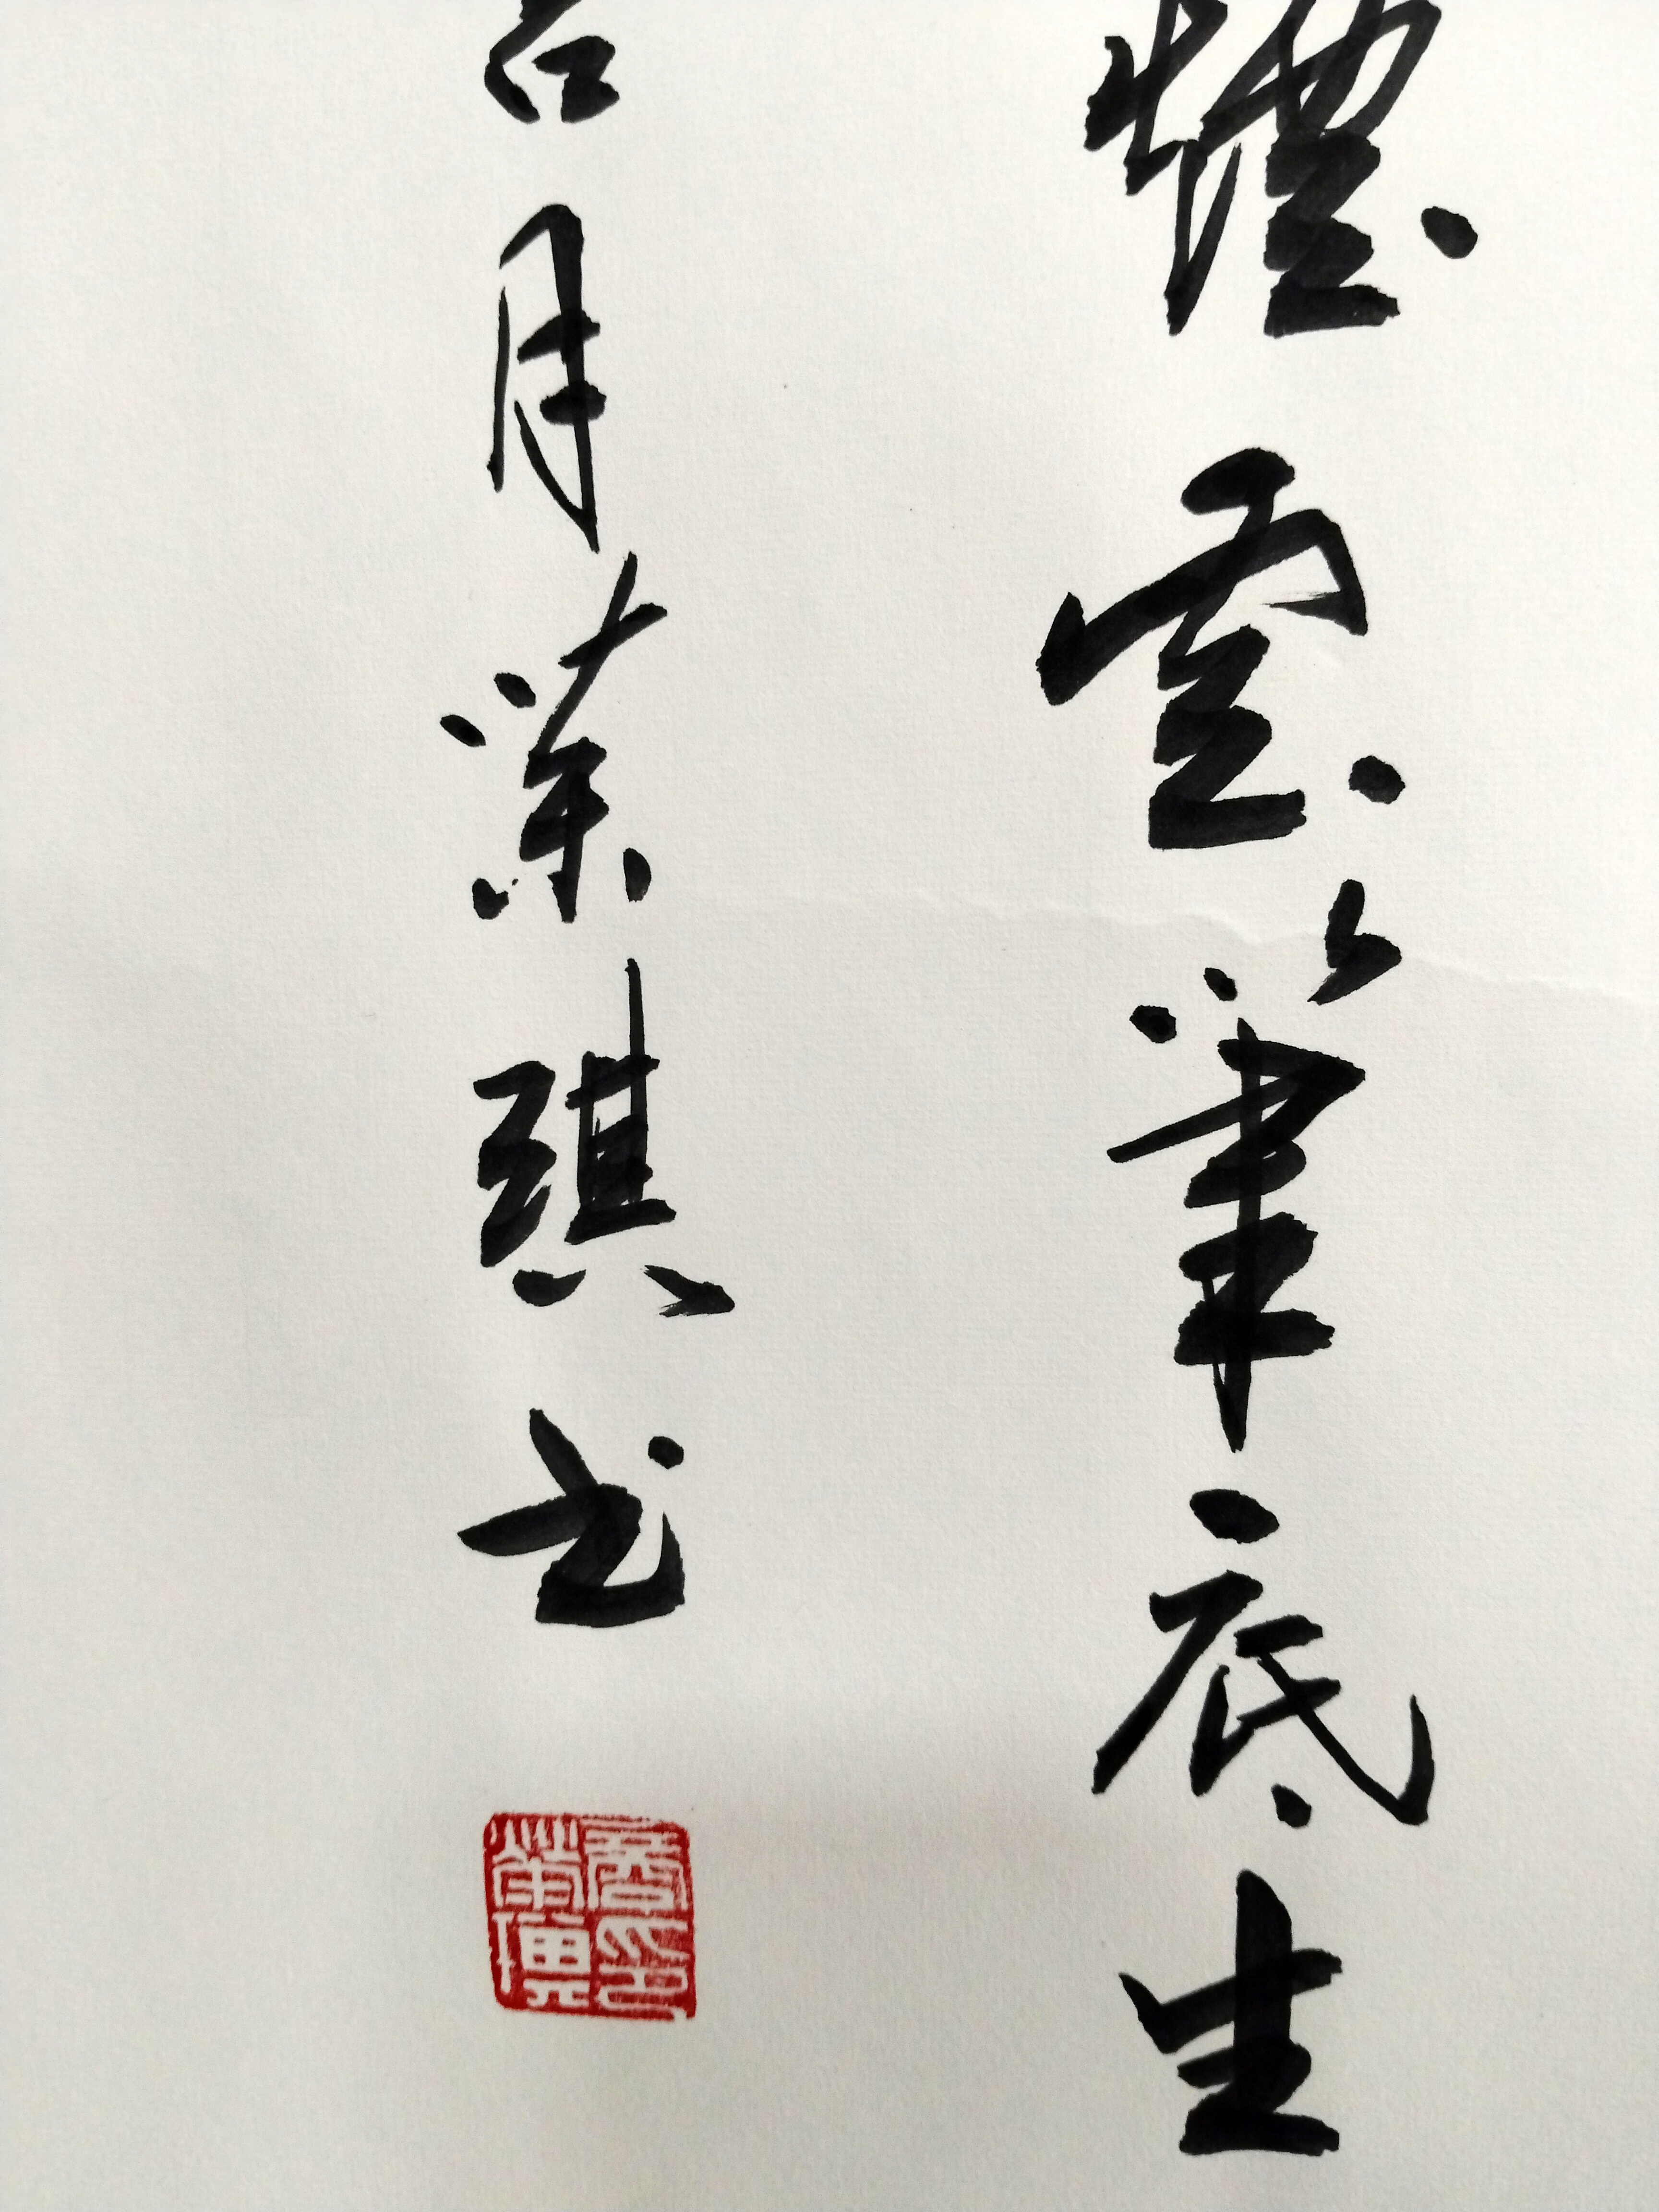 煙雲筆底生
月荣琪书